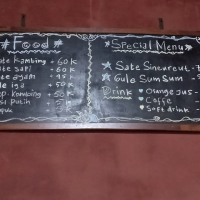 Food
ate Kambing + 60 K
ate sapi + 60 K
ate ayam + 45 K
le iga + 50 K
op. Kambing + 50 K
Putih + 5
Special Menu
Sate Sineureut -
Gule Sumsum -
Drink
Orange Jus -
Caffe -
Soft drink -